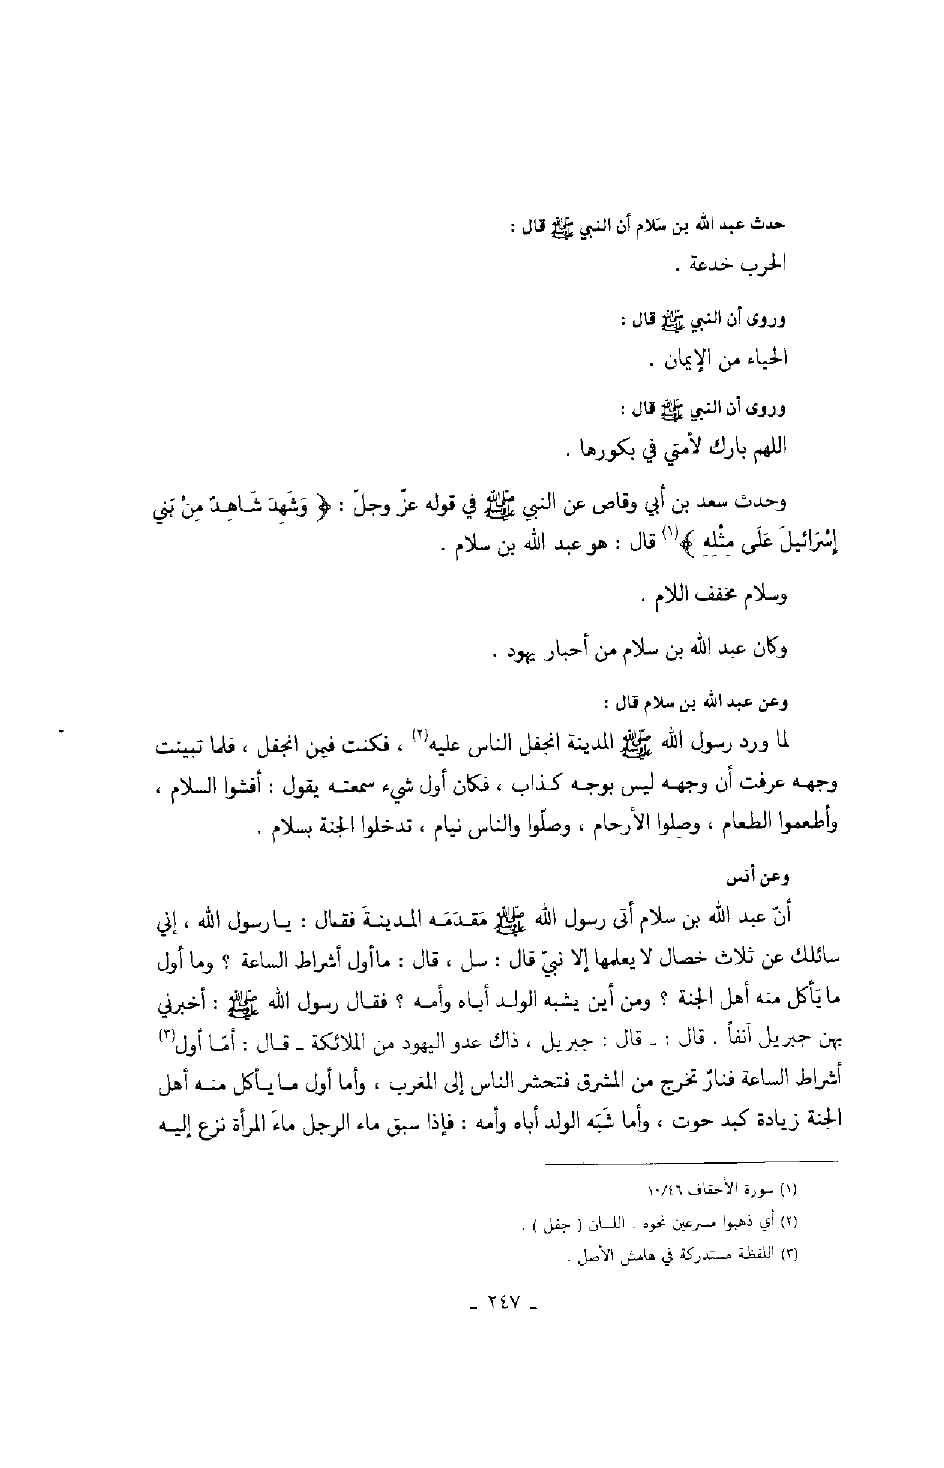 حدث عبد الله بن سَلام أن النبي ﷺ قال :
الحرب خدعة .
وروى أن النبي ﷺ قال :
الحياء من الإيمان .
وروى أن النبي ﷺ قال :
اللهم بارك لأمتي في بكورها .
وحدث سعد بن أبي وقاص عن النبي ﷺ في قوله عزّ وجلّ : ﴿ وَشَهِدَ شَاهِدٌ مِنْ بَنِي
إِسْرَائيلَ عَلَى مِثْلِهِ ﴾(١) قال : هو عبد الله بن سلام .
وسلام مخفف اللام .
وكان عبد الله بن سلام من أحبار يهود .
وعن عبد الله بن سلام قال :
لما ورد رسول الله ﷺ المدينة انجفل الناس عليه(٢) ، فكنت فيمن انجفل ، فلما تبينت
وجهه عرفت أن وجهه ليس بوجه كذاب ، فكان أول شيء سمعته يقول : أفشوا السلام ،
وأطعموا الطعام ، وصلوا الأرحام ، وصلّوا والناس نيام ، تدخلوا الجنة بسلام .
وعن أنس
أنّ عبد الله بن سلام أتى رسول الله ﷺ مَقدَمَه المدينةَ فقال : يا رسول الله ، إني
سائلك عن ثلاث خصال لا يعلمها إلا نبيّ قال : سل ، قال : ما أول أشراط الساعة ؟ وما أول
ما يَأكل منه أهل الجنة ؟ ومن أين يشبه الولد أباه وأمه ؟ فقال رسول الله ﷺ : أخبرني
بهن جبريل آنفاً . قال : ـ قال : جبريل ، ذاك عدو اليهود من الملائكة ـ قال : أمّا أول(٣)
أشراط الساعة فنارٌ تخرج من المشرق فتحشر الناس إلى المغرب ، وأما أول ما يأكل منه أهل
الجنة زيادة كبد حوت ، وأما شَبَه الولد أباه وأمه : فإذا سبق ماء الرجل ماءَ المرأة نزع إليه
(١) سورة الأحقاف ١٠/٤٦
(٢) أي ذهبوا مسرعين نحوه . اللسان ( جفل ) .
(٣) اللفظة مستدركة في هامش الأصل .
ـ ٢٤٧ ـ